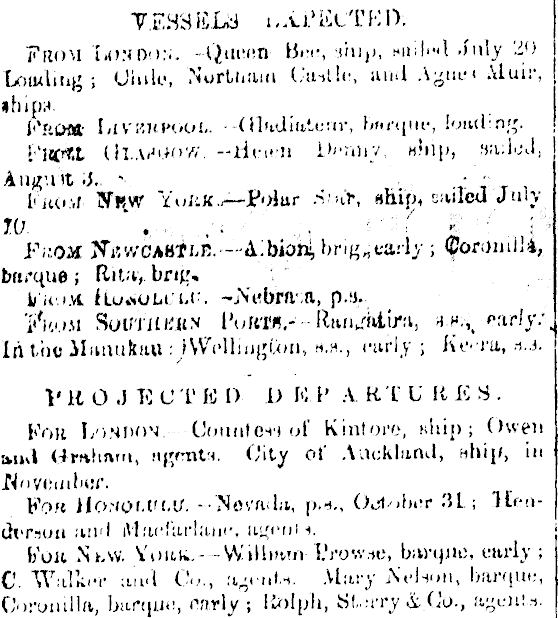 VESSELS EXPECTED.
FROM LONDON.—Queen Bee, ship, sailed July 20
Loading; Chile, Northam Castle, and Agnes Muir,
ships.
FROM LIVERPOOL.—Gladiateur, barque, loading.
FROM GLASGOW.—Helen Denny, ship, sailed,
August 3.
FROM NEW YORK.—Polar Star, ship, sailed July
10.
FROM NEWCASTLE.—Albion, brig, early; Coronilla,
barque; Rita, brig.
FROM HONOLULU.—Nebraska, p.s.
FROM SOUTHERN PORTS.—Rangatira, s.s., early.
In the Manukau: Wellington, s.s., early; Keera, s.s.
PROJECTED DEPARTURES.
FOR LONDON.—Countess of Kintore, ship; Owen
and Graham, agents. City of Auckland, ship, in
November.
FOR HONOLULU.—Nevada, p.s., October 31; Hen-
derson and Macfarlane, agents.
FOR NEW YORK.—William Prowse, barque, early;
C. Walker and Co., agents. Mary Nelson, barque,
Coronilla, barque, early; Rolph, Storry & Co., agents.